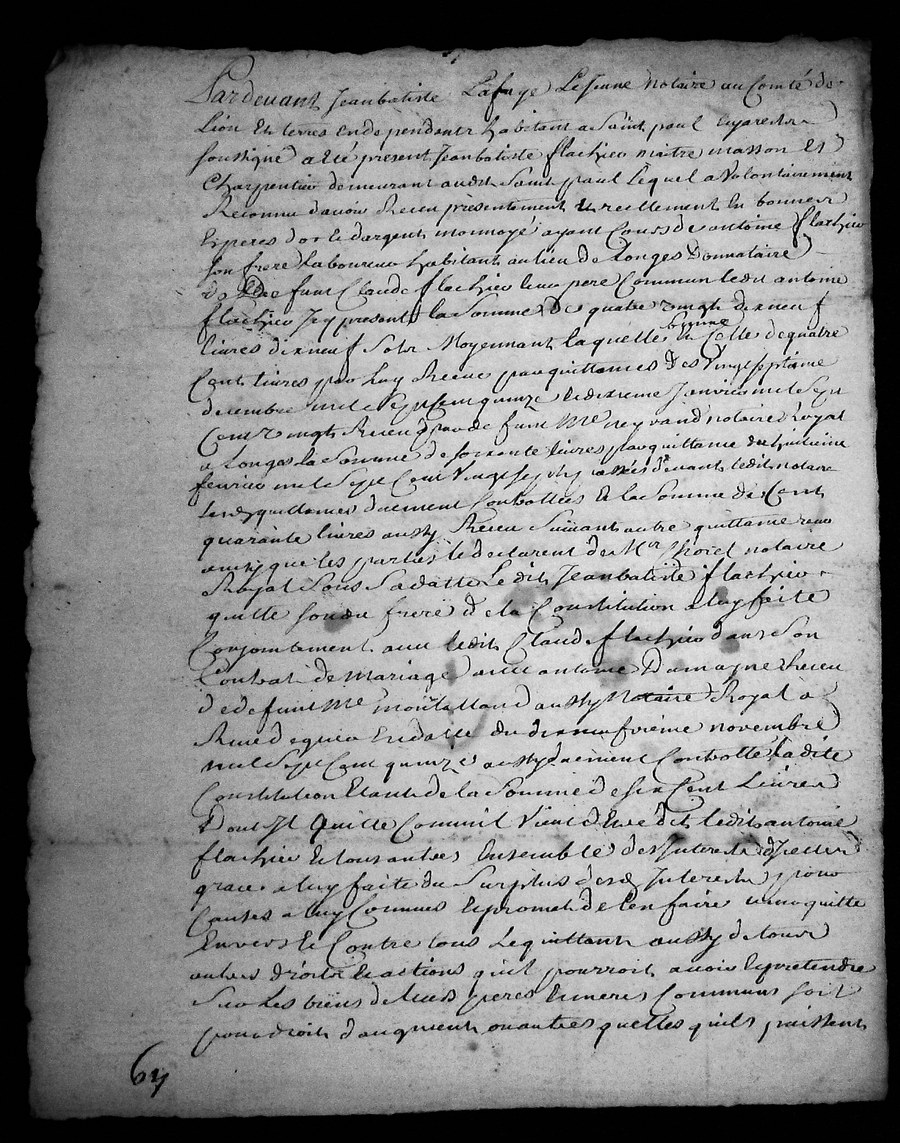 Pardevant Jeanbatiste Lafaye Lejeune notaire au Comté de
Lion Et terres En dependents habitant a Saint paul
soussigné a été present Jeanbatiste flachieu maitre masson Et
Charpentier demeurant audit Saint paul Lequel a Volontairement
Reconnu d'avoir Receu présentement et reellement En bonnes
Especes d'or et d'argent monnoyé ayant Cours de antoine flachieu
son frere Laboureur habitant au lieu de Longes Donnataire
de funt Claude flachieu leur pere Commun ledit antoine
flachieu Icy present la Somme De quatre vingts dixneuf
livres dixneuf Sols Moyennant laquelle somme Et Celle de quatre
Cent livres par Luy Receue par quittances des Vingt septième
decembre mil Sept Cent quinze le dixieme Janvier mil Sept
Cent vingts Receu par de funt Me neyrand notaire Royal
a Longes la Somme de soixante livres par quittance du huitieme
fevrier mil Sept Cent Vingt Sept passées devant ledit notaire
quittances duement Controllées Et la Somme de Cent
quarante livres aussy Receu Suivant autre quittance
ainsy que les parties le declarent de Mr notaire
Royal Sous Sa datte Ledit Jeanbatiste flachieu
quitte sondit frere de la Constitution a luy faite
Conjointement avec ledit Claude flachieu dans Son
Contrat de Mariage avec antoine Damagne Receu
de defunt Me montalland aussy Notaire Royal a
Rivedegier En datte du dixneufvieme novembre
mil Sept Cent quinze aussy duement Controllé la dite
Constitution Etant de la Somme de six Cent Livres
Dont Il Quitte Comm'il Vient d'Etre dit ledit antoine
flachieu Et tous autres Ensemble des Interets d'Icelle
grace a luy faite du Surplus desd Interets pour
Causes a luy Connues Et promet de l'en faire tenir quitte
Envers Et Contre tous Le quittant aussy de tous
autres droits Et actions qu'il pourroit avoir Et pretendre
Sur Les biens de leurs peres Et meres Communs soit
pour droit d'augment ou autres quelles qu'ils puissent